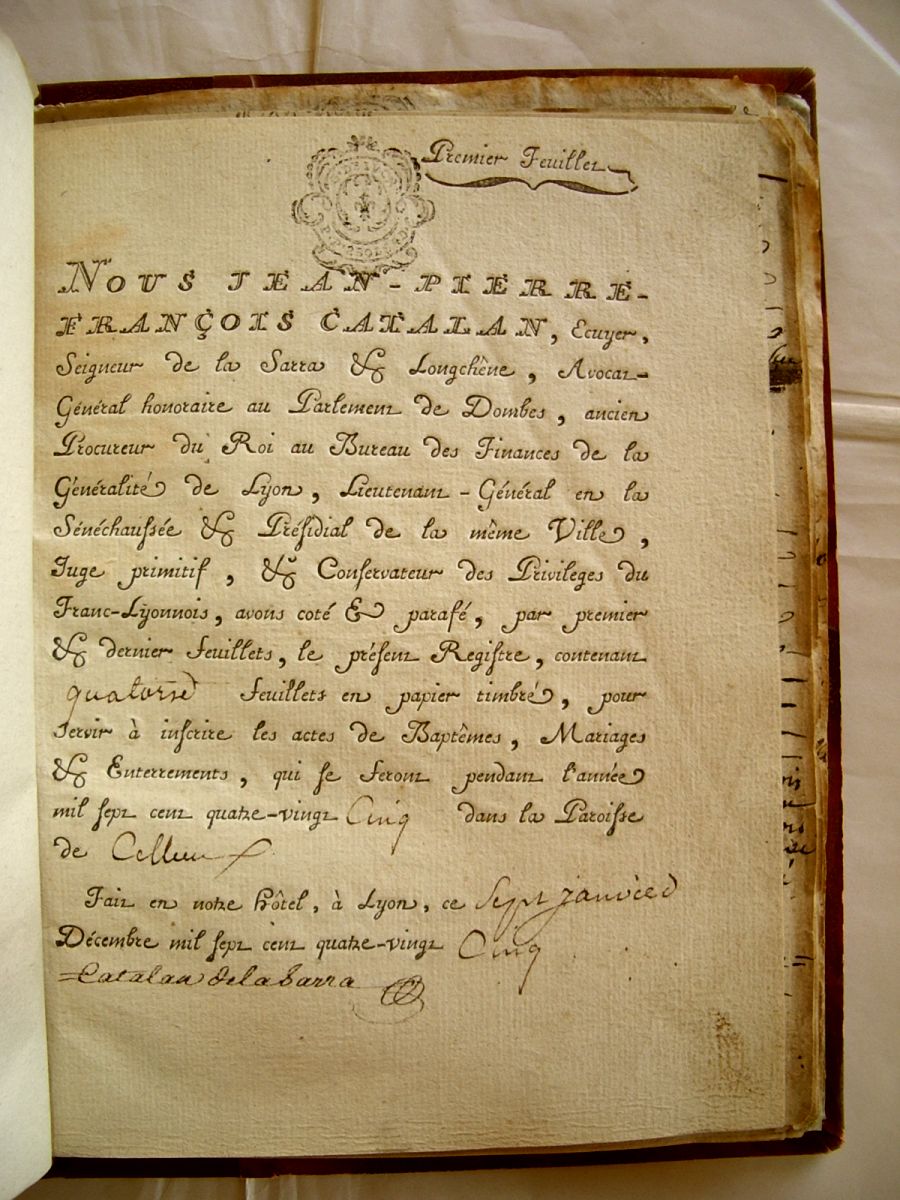 Premier Feuillet
NOUS JEAN-PIERRE-
FRANÇOIS CATALAN, Ecuyer,
Seigneur de la Sarra & Longchêne, Avocat-
Général honoraire au Parlement de Dombes, ancien
Procureur du Roi au Bureau des Finances de la
Généralité de Lyon, Lieutenant-Général en la
Sénéchaussée & Présidial de la même Ville,
Juge primitif, & Conservateur des Privileges du
Franc-Lyonnois, avons coté & parafé, par premier
& dernier feuillets, le présent Registre, contenant
quatorze feuillets en papier timbré, pour
servir à inscrire les actes de Baptêmes, Mariages
& Enterrements, qui se feront pendant l'année
mil sept cent quatre-vingt Cinq dans la Paroisse
de
Fait en notre hôtel, à Lyon, ce Sept janvier
Décembre mil sept cent quatre-vingt Cinq
Catalan de la Sarra